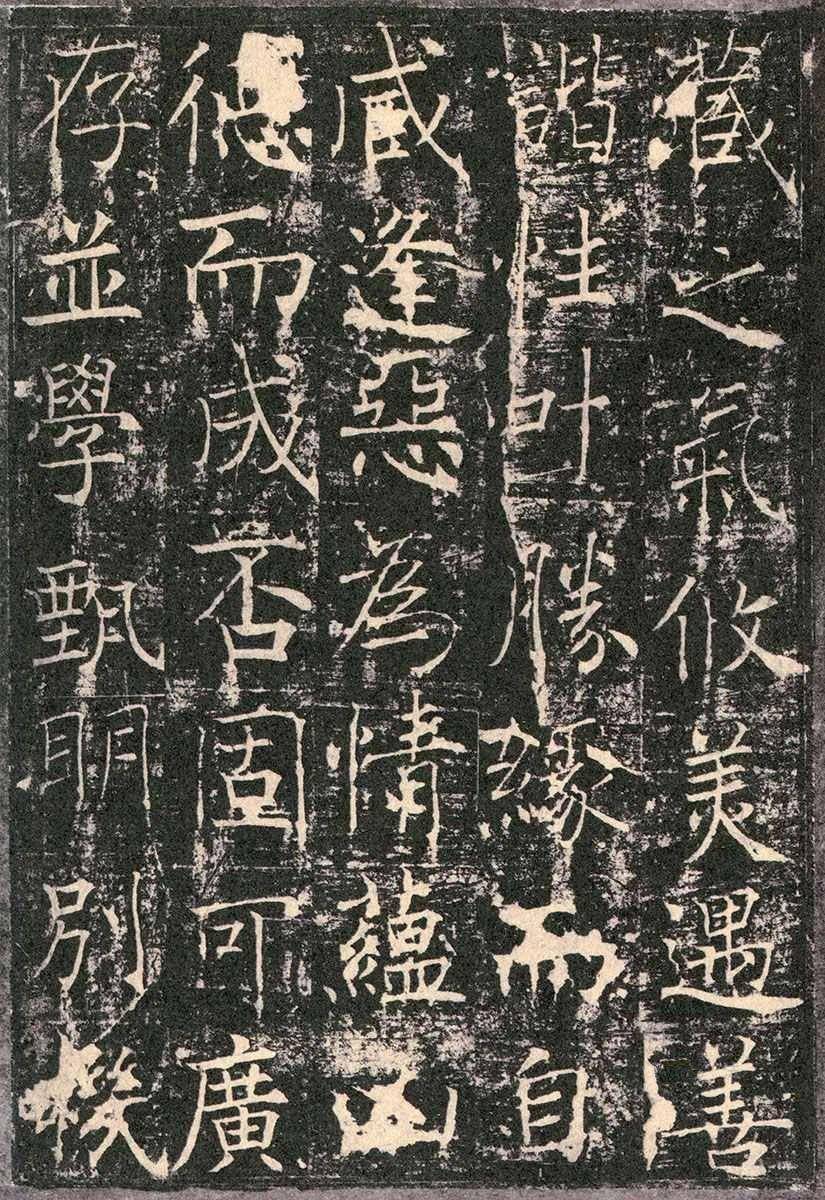 藏之氣攸美遇善
諧性叶勝緣而自
臧逢惡為情蘊凶
而成否固可廣
存並學甄眀別機